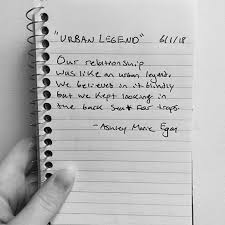 "URBAN LEGEND" 6/1/18
Our relationship
was like an urban legend.
We believed in it blindly
but we kept looking in
the back seat for traps.
-Ashley Marie Egan